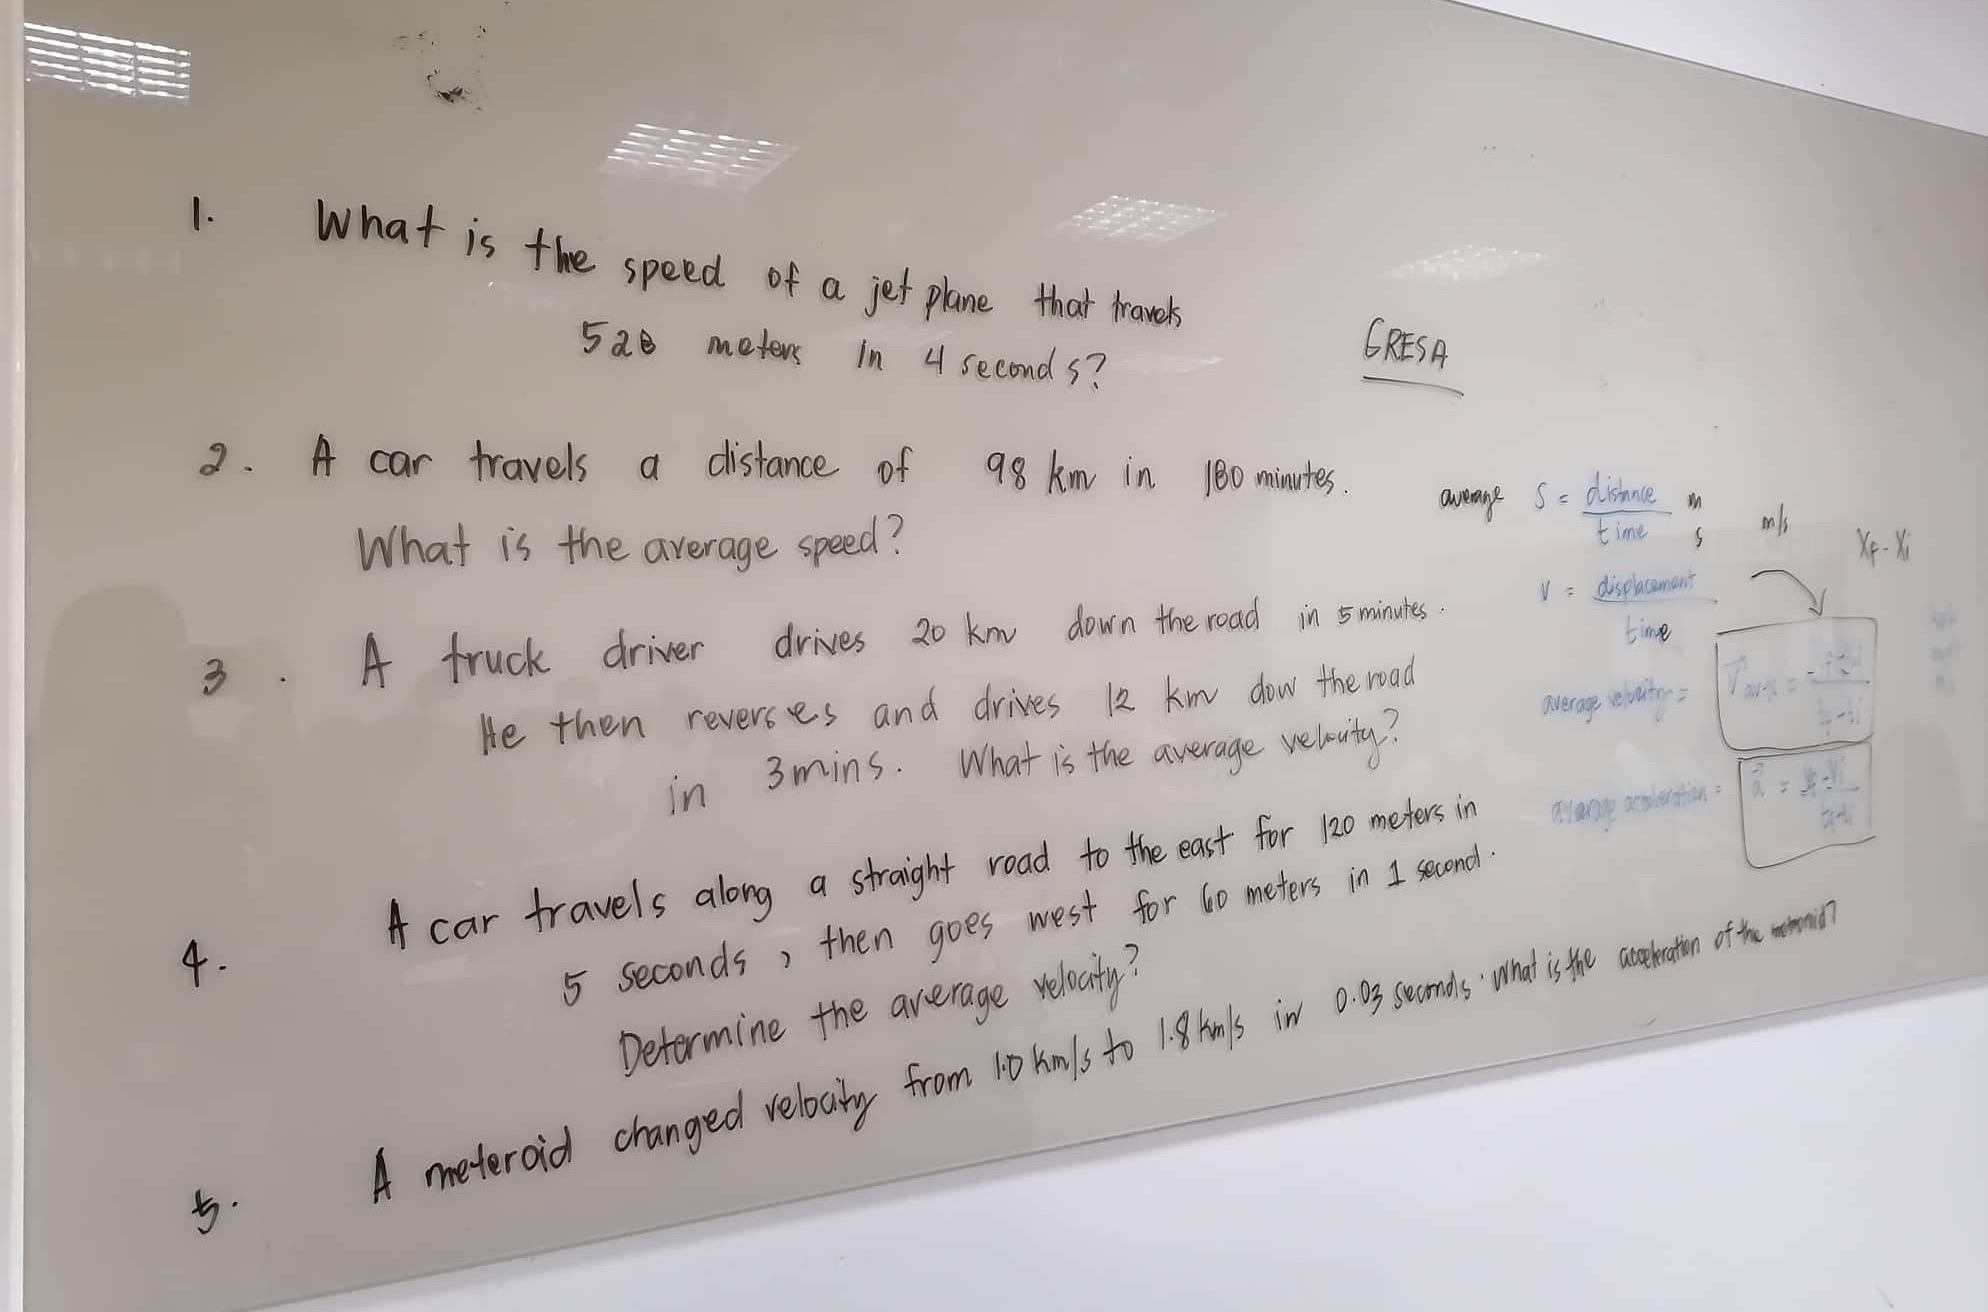 1. What is the speed of a jet plane that travels
528 meters in 4 seconds?
GRESA
2. A car travels a distance of 98 km in 180 minutes.
What is the average speed?
average S = distance m
time s
m/s
Xf - Xi
V = displacement
time
3. A truck driver drives 20 km down the road in 5 minutes.
He then reverses and drives 12 km dow the road
in 3mins. What is the average velocity?
average velocity =
average acceleration = a = Vf - Vi
tf-ti
4. A car travels along a straight road to the east for 120 meters in
5 seconds, then goes west for 60 meters in 1 second.
Determine the average velocity?
5. A meteroid changed velocity from 1.0 km/s to 1.8 km/s in 0.03 seconds. What is the acceleration of the